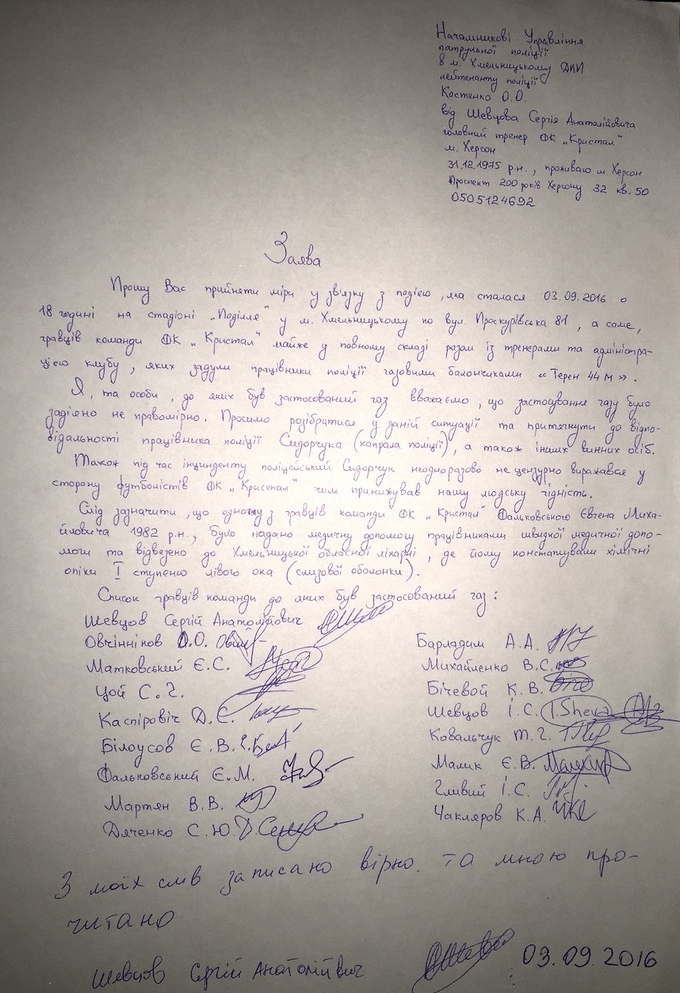 Начальникові Управління
патрульної поліції
в м. Хмельницькому ДПП
лейтенанту поліції
Костенко О.О.
від Шевцова Сергія Анатолійовича
головний тренер ФК „Кристал"
м. Херсон
31.12.1975 р.н., проживаю м Херсон
Проспект 200 років Херсону 32 кв. 50
0505124692
Заява
Прошу Вас прийняти міри у зв'язку з подією, яка сталася 03.09.2016 о
18 годині на стадіоні „Поділля" у м. Хмельницькому по вул. Проскурівська 81, а саме,
гравців команди ФК „Кристал" майже у повному складі разом із тренерами та адміністра-
цією клубу, яких задули працівники поліції газовими балончиками «Терен 4М».
Я, та особи, до яких був застосований газ вважаємо, що застосування газу було
задіяно не правомірно. Просимо розібратися у даній ситуації та притягнути до відпо-
відальності працівника поліції Сидорчука (капрала поліції), а також інших винних осіб.
Також під час інциденту поліцейський Сидорчук неодноразово не цензурно виражався у
сторону футболістів ФК „Кристал" чим принижував нашу людську гідність.
Слід зазначити, що одному з гравців команди ФК „Кристал" Фальковського Євгена Миха-
йловича 1982 р.н., було надано медичну допомогу працівниками швидкої медичної допо-
моги та відвезено до Хмельницької обласної лікарні, де йому констатували хімічні
опіки I ступеню лівого ока (слизової оболонки).
Список гравців команди до яких був застосований газ:
Шевцов Сергій Анатолійович
Овчінніков О.О.
Матковський Є.С.
Цой С.Г.
Каспіровіч Д.Є.
Білоусов Є.В.
Фальковський Є.М.
Мартян В.В.
Дяченко С.Ю.
Барладим А.А.
Михайленко В.С.
Бічевой К.В.
Шевцов І.С. I.Sheva
Ковальчук Т.Г.
Малик Є.В.
Гливий І.С.
Чакляров К.А.
З моїх слів записано вірно. та мною про-
читано
Шевцов Сергій Анатолійвич 09.09.2016